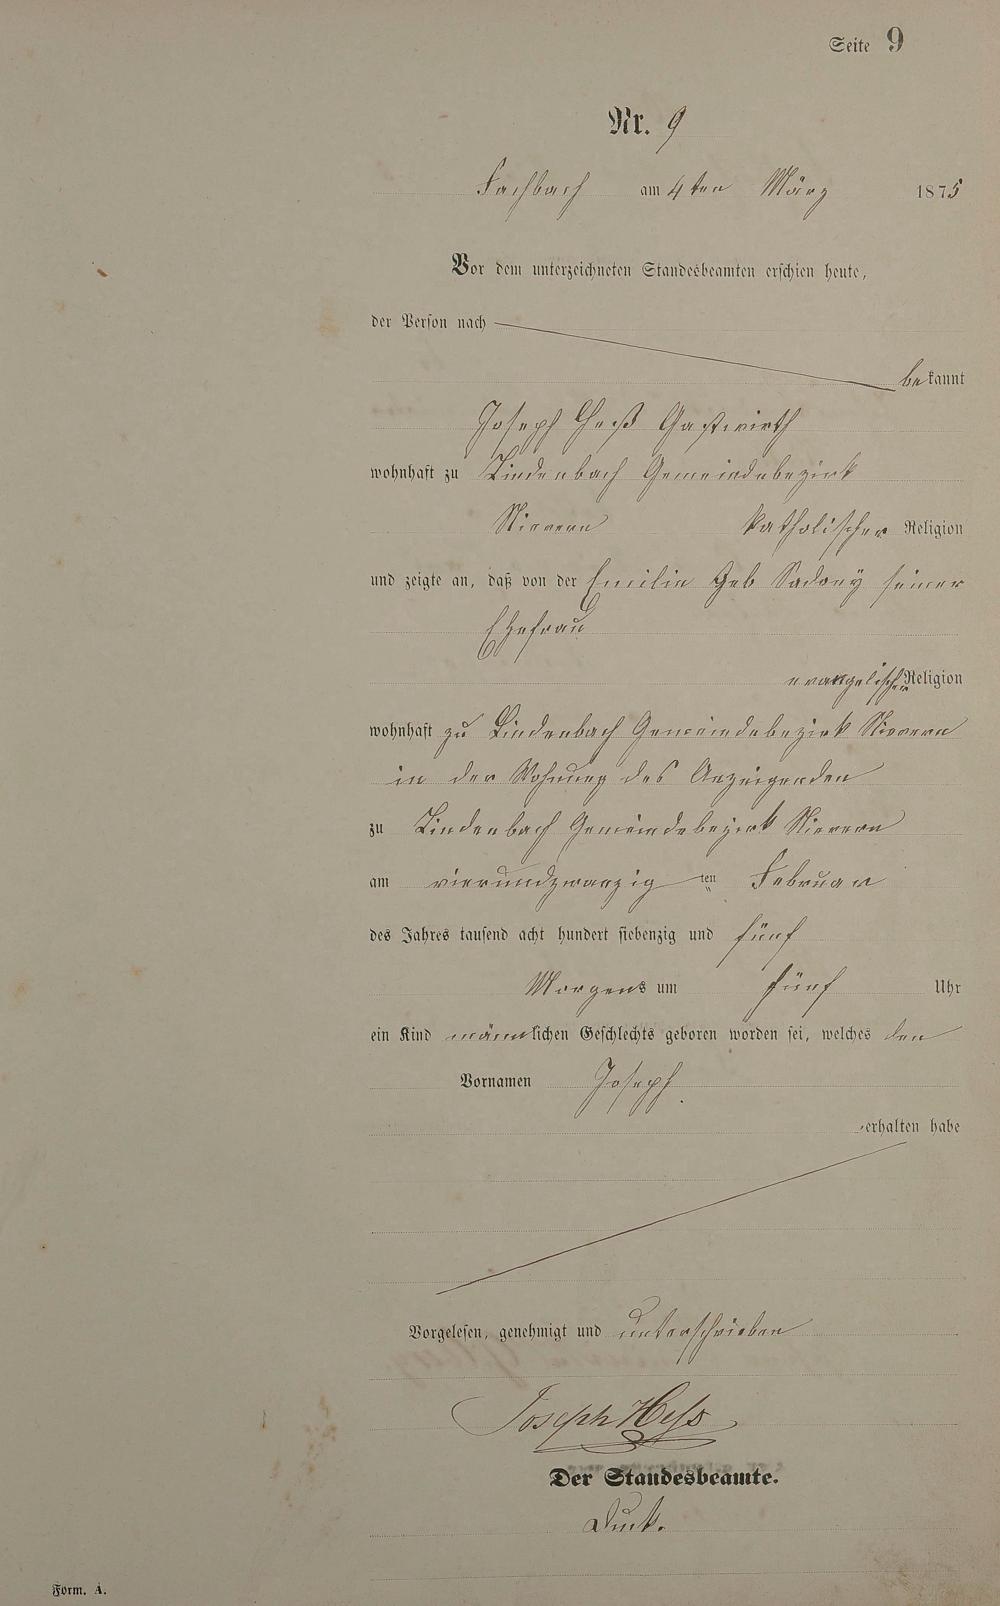 Seite 9
Nr. 9
Fachbach am 4ten März 1875
Vor dem unterzeichneten Standesbeamten erschien heute,
der Person nach
bekannt
Joseph Heß Gastwirth
wohnhaft zu Lindenbach Gemeindebezirk
Nievern katholischer Religion
und zeigte an, daß von der Emilie Geb Sadony seiner
Ehefrau
evangelischer Religion
wohnhaft zu Lindenbach Gemeindebezirk Nievern
in der Wohnung des Anzeigenden
zu Lindenbach Gemeindebezirk Nievern
am vierundzwanzig ten Februar
des Jahres tausend acht hundert siebenzig und fünf
Morgens um fünf Uhr
ein Kind männlichen Geschlechts geboren worden sei, welches den
Vornamen Joseph
erhalten habe
Vorgelesen, genehmigt und unterschrieben
Joseph Hess
Der Standesbeamte.
Form. A.